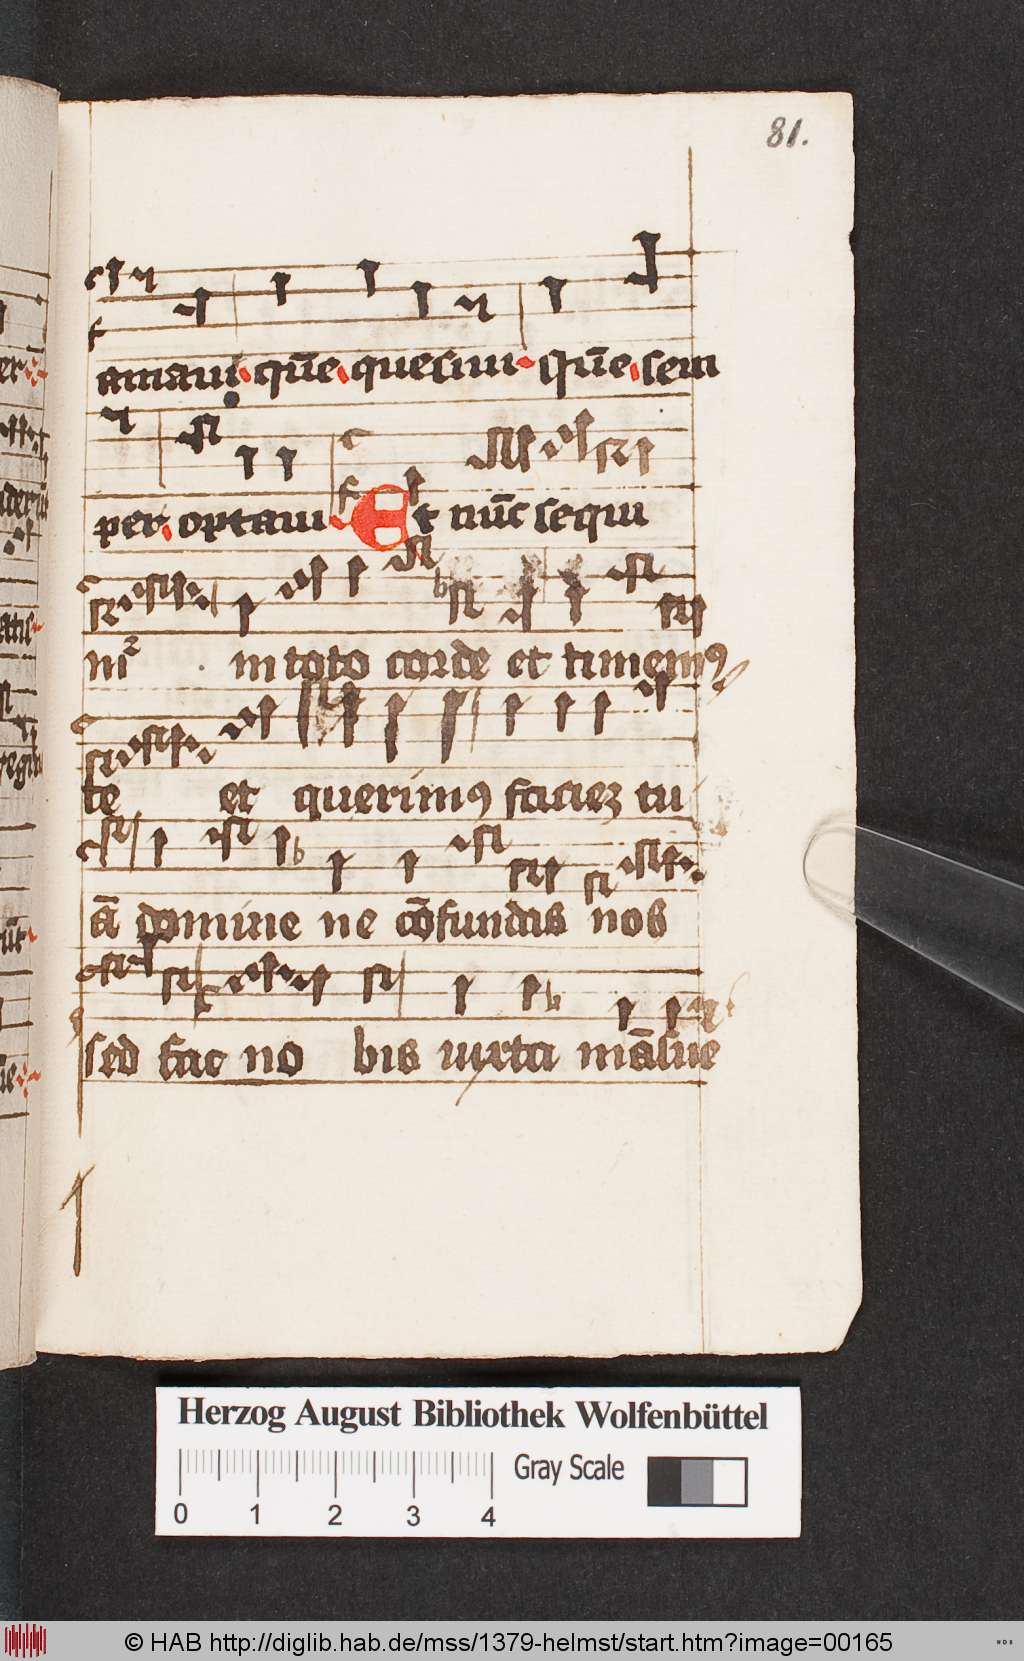 81.
amaui que̅ quesiui Que̅ sem
per optaui Et nūc sequi
mꝛ in toto corde et timemꝰ
te et querimꝰ faciez tu
ā domine ne cōfundas nos
sed fac no bis iuxta māsue
Herzog August Bibliothek Wolfenbüttel
0 1 2 3 4 Gray Scale
© HAB http://diglib.hab.de/mss/1379-helmst/start.htm?image=00165